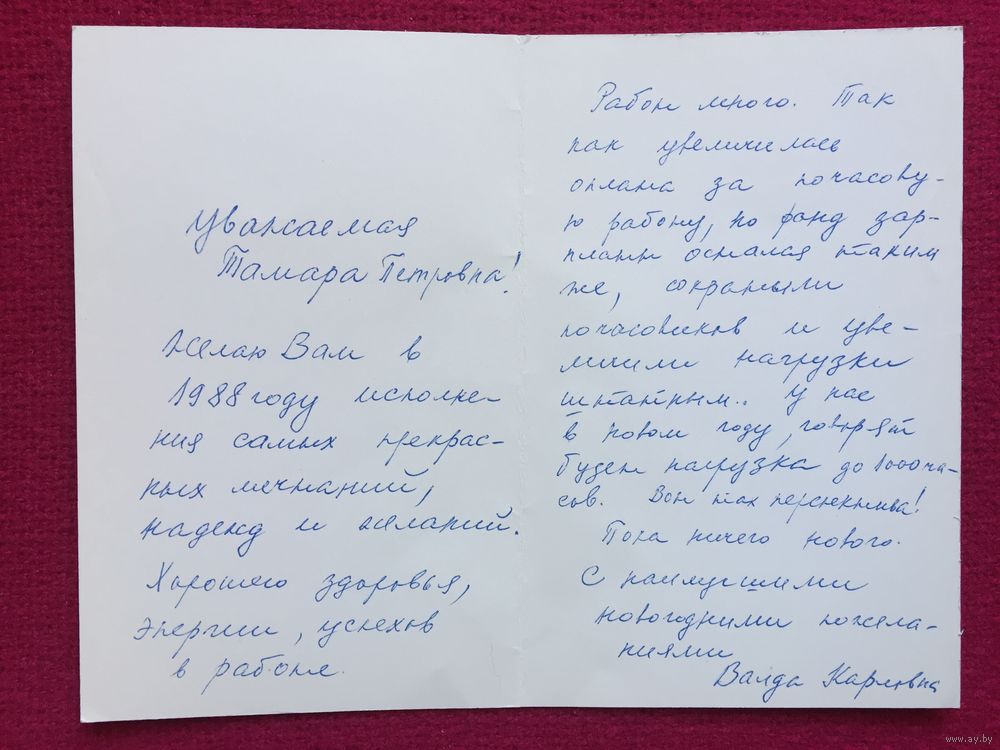 Уважаемая
Тамара Петровна!
Желаю Вам в
1988 году исполне-
ния самых прекрас-
ных мечтаний,
надежд и желаний.
Хорошего здоровья,
энергии, успехов
в работе.
Работы много. Так
как увеличилась
оплата за почасову-
ю работу, но фонд зар-
платы остался таким
же, сократили
почасовиков и уве-
личили нагрузки
штатным. У нас
в новом году, говорят
будет нагрузка до 1000 ча-
сов. Вот так перспектива!
Пока ничего нового.
С наилучшими
новогодними пожела-
ниями
Валда Карловна
www.ay.by